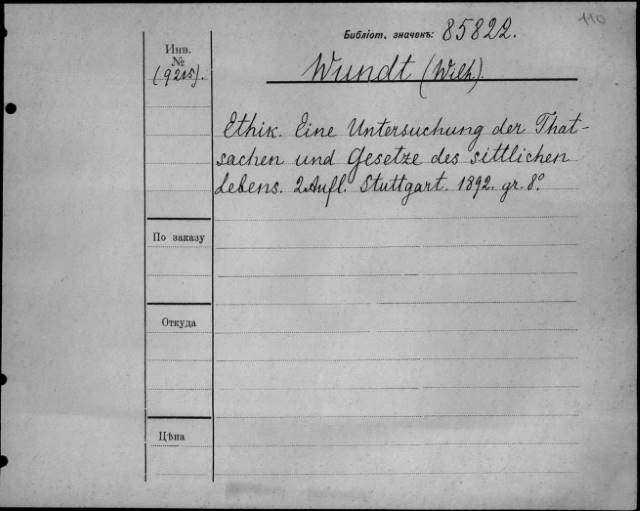 110
Библіот. значекъ: 85822.
Инв.
№
(9205).
Wundt (Wilh).
Ethik. Eine Untersuchung der That-
sachen und Gesetze des sittlichen
Lebens. 2 Aufl. Stuttgart. 1892. gr. 8º
По заказу
Откуда
Цѣна